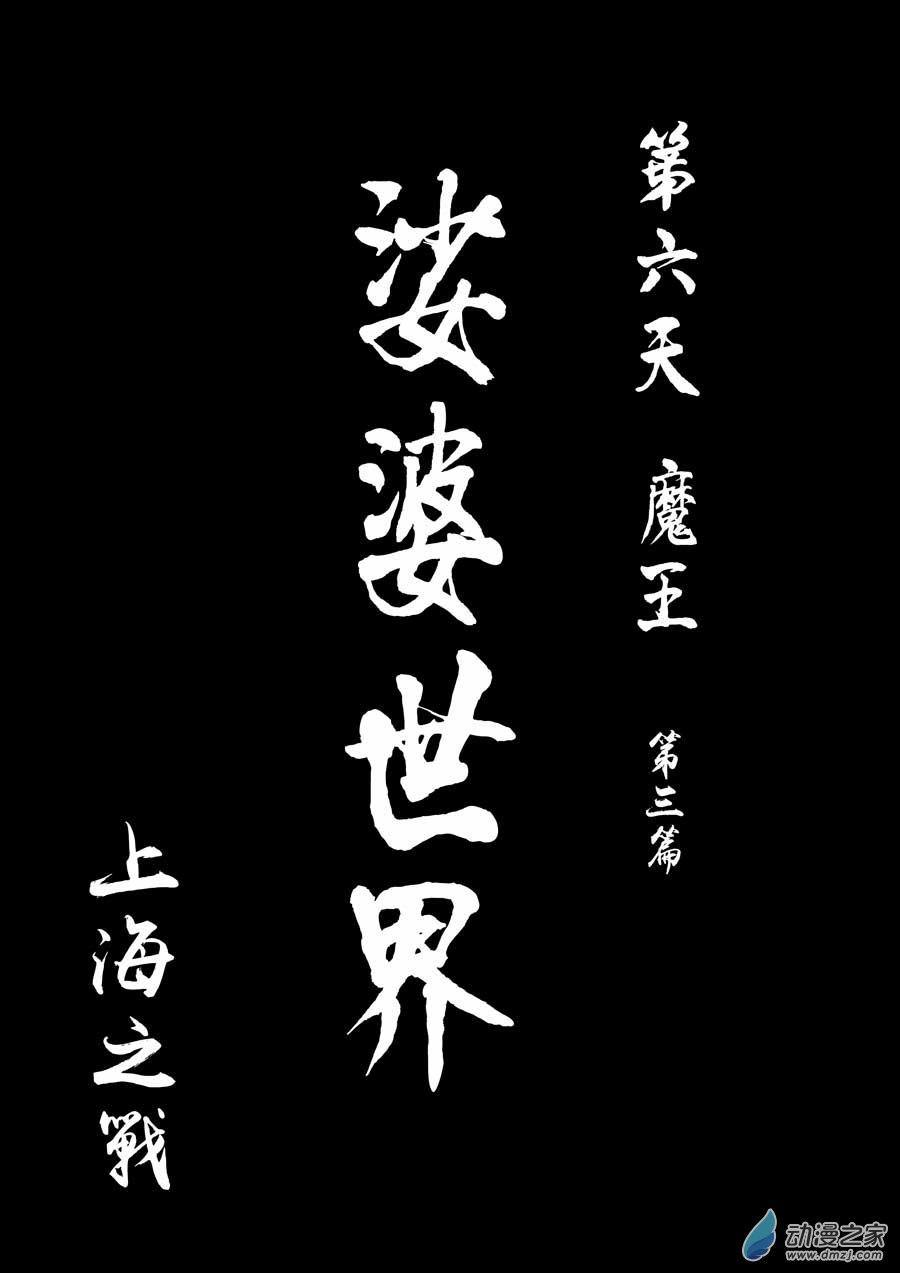 第六天 魔王 第三篇
娑婆世界
上海之戰
动漫之家
www.dmzj.com